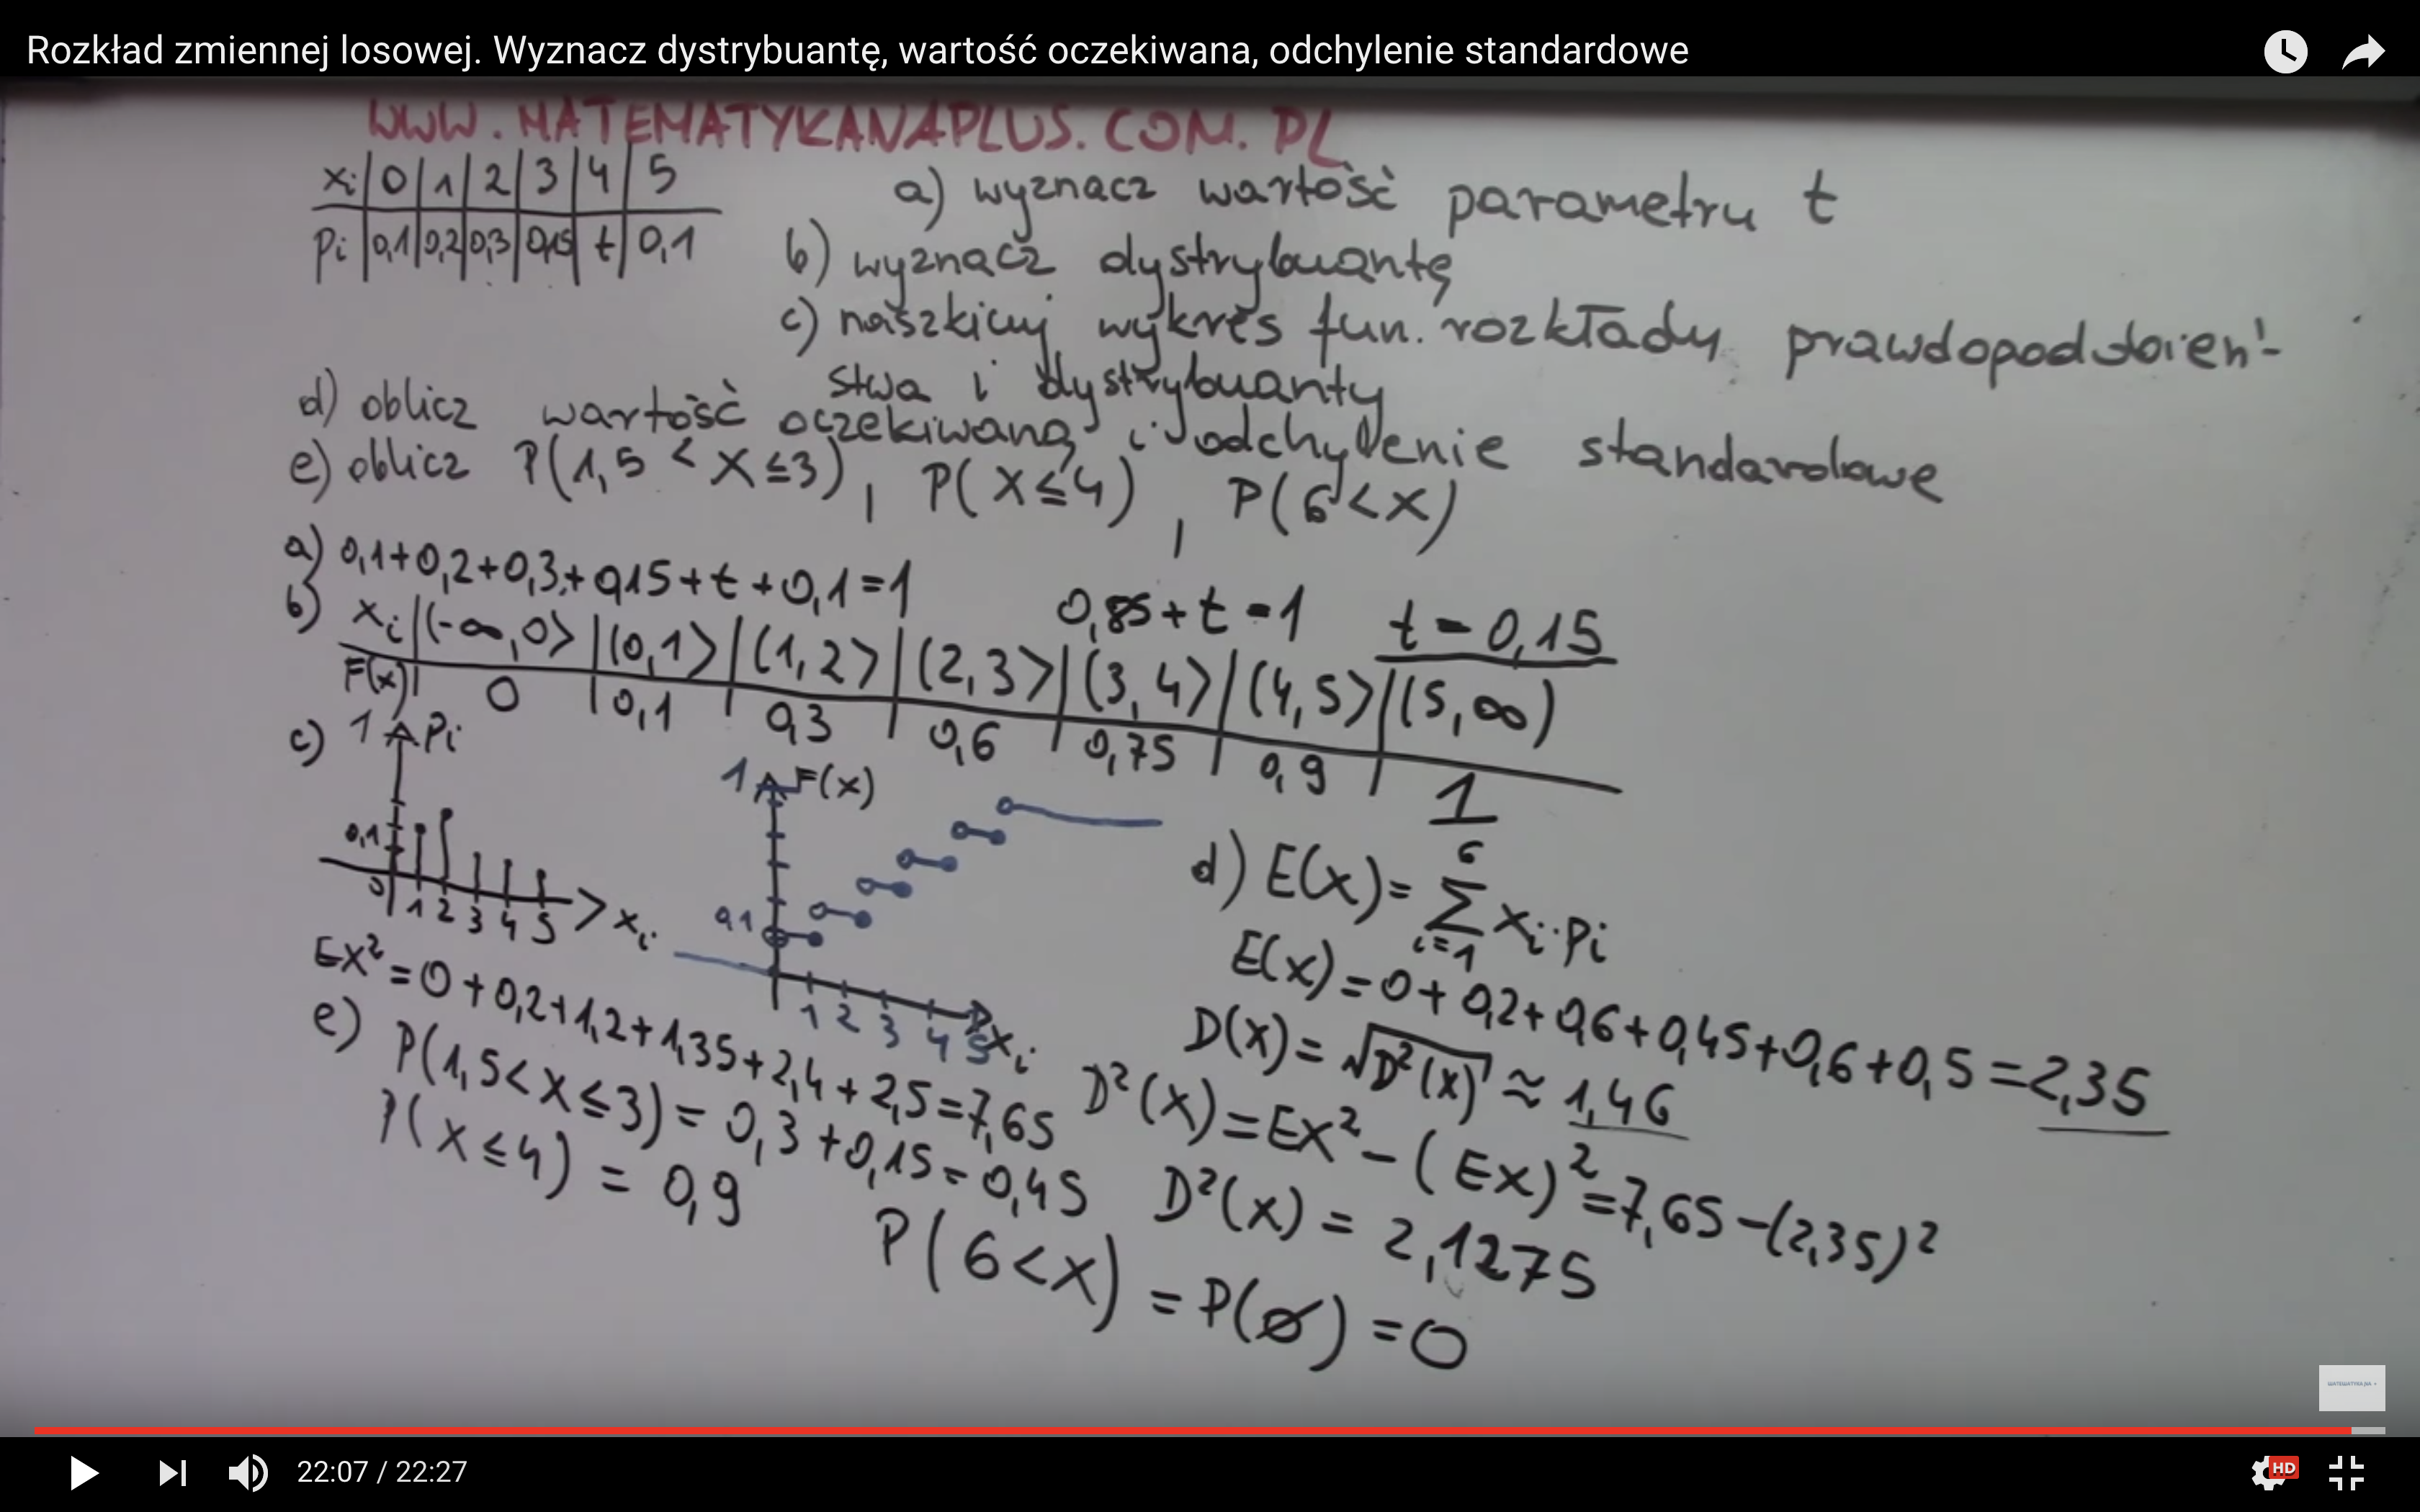 Rozkład zmiennej losowej. Wyznacz dystrybuantę, wartość oczekiwana, odchylenie standardowe
WWW.MATEMATYKANAPLUS.COM.PL
xi | 0 | 1 | 2 | 3 | 4 | 5
Pi | 0,1 | 0,2 | 0,3 | 0,15 | t | 0,1
a) wyznacz wartość parametru t
b) wyznacz dystrybuantę
c) naszkicuj wykres fun. rozkłady prawdopodobień-
stwa i dystrybuanty
d) oblicz wartość oczekiwaną i odchylenie standardowe
e) oblicz P(1,5 < X ≤ 3), P(X ≤ 4), P(6 < X)
a) 0,1+0,2+0,3+0,15+t+0,1=1 0,85+t=1 t=0,15
b) xi | (-∞,0> | (0,1> | (1,2> | (2,3> | (3,4> | (4,5> | (5,∞)
F(x) | 0 | 0,1 | 0,3 | 0,6 | 0,75 | 0,9 | 1
c) 1 Pi
0,1
0 1 2 3 4 5 xi
1 F(x)
0,1
1 2 3 4 5 xi
d) E(X) = 6 Σ i=1 xi·Pi
E(X)=0+0,2+0,6+0,45+0,6+0,5=2,35
D(X)=√D²(X) ≈ 1,46
D²(X)=EX²-(EX)²=7,65-(2,35)²
D²(X)=2,1275
EX²=0+0,2+1,2+1,35+2,4+2,5=7,65
e) P(1,5<X≤3)=0,3+0,15=0,45
P(X≤4)=0,9
P(6<X)=P(Ø)=0
22:07 / 22:27
HD